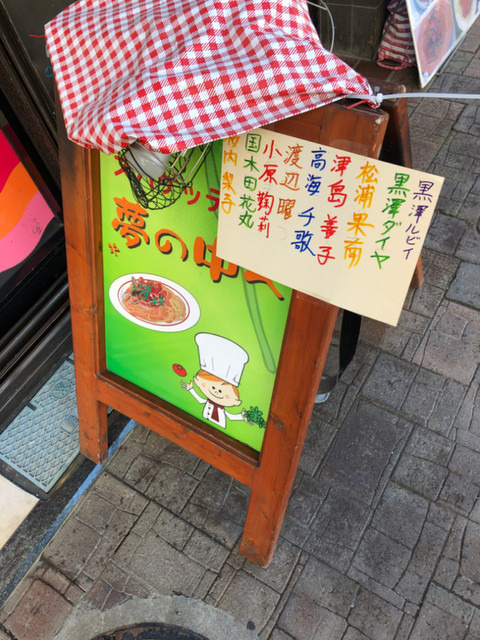 黒澤ルビィ
黒澤ダイヤ
松浦果南
津島善子
高海千歌
渡辺曜
小原鞠莉
国木田花丸
内梨子
ッテ
夢の中へ